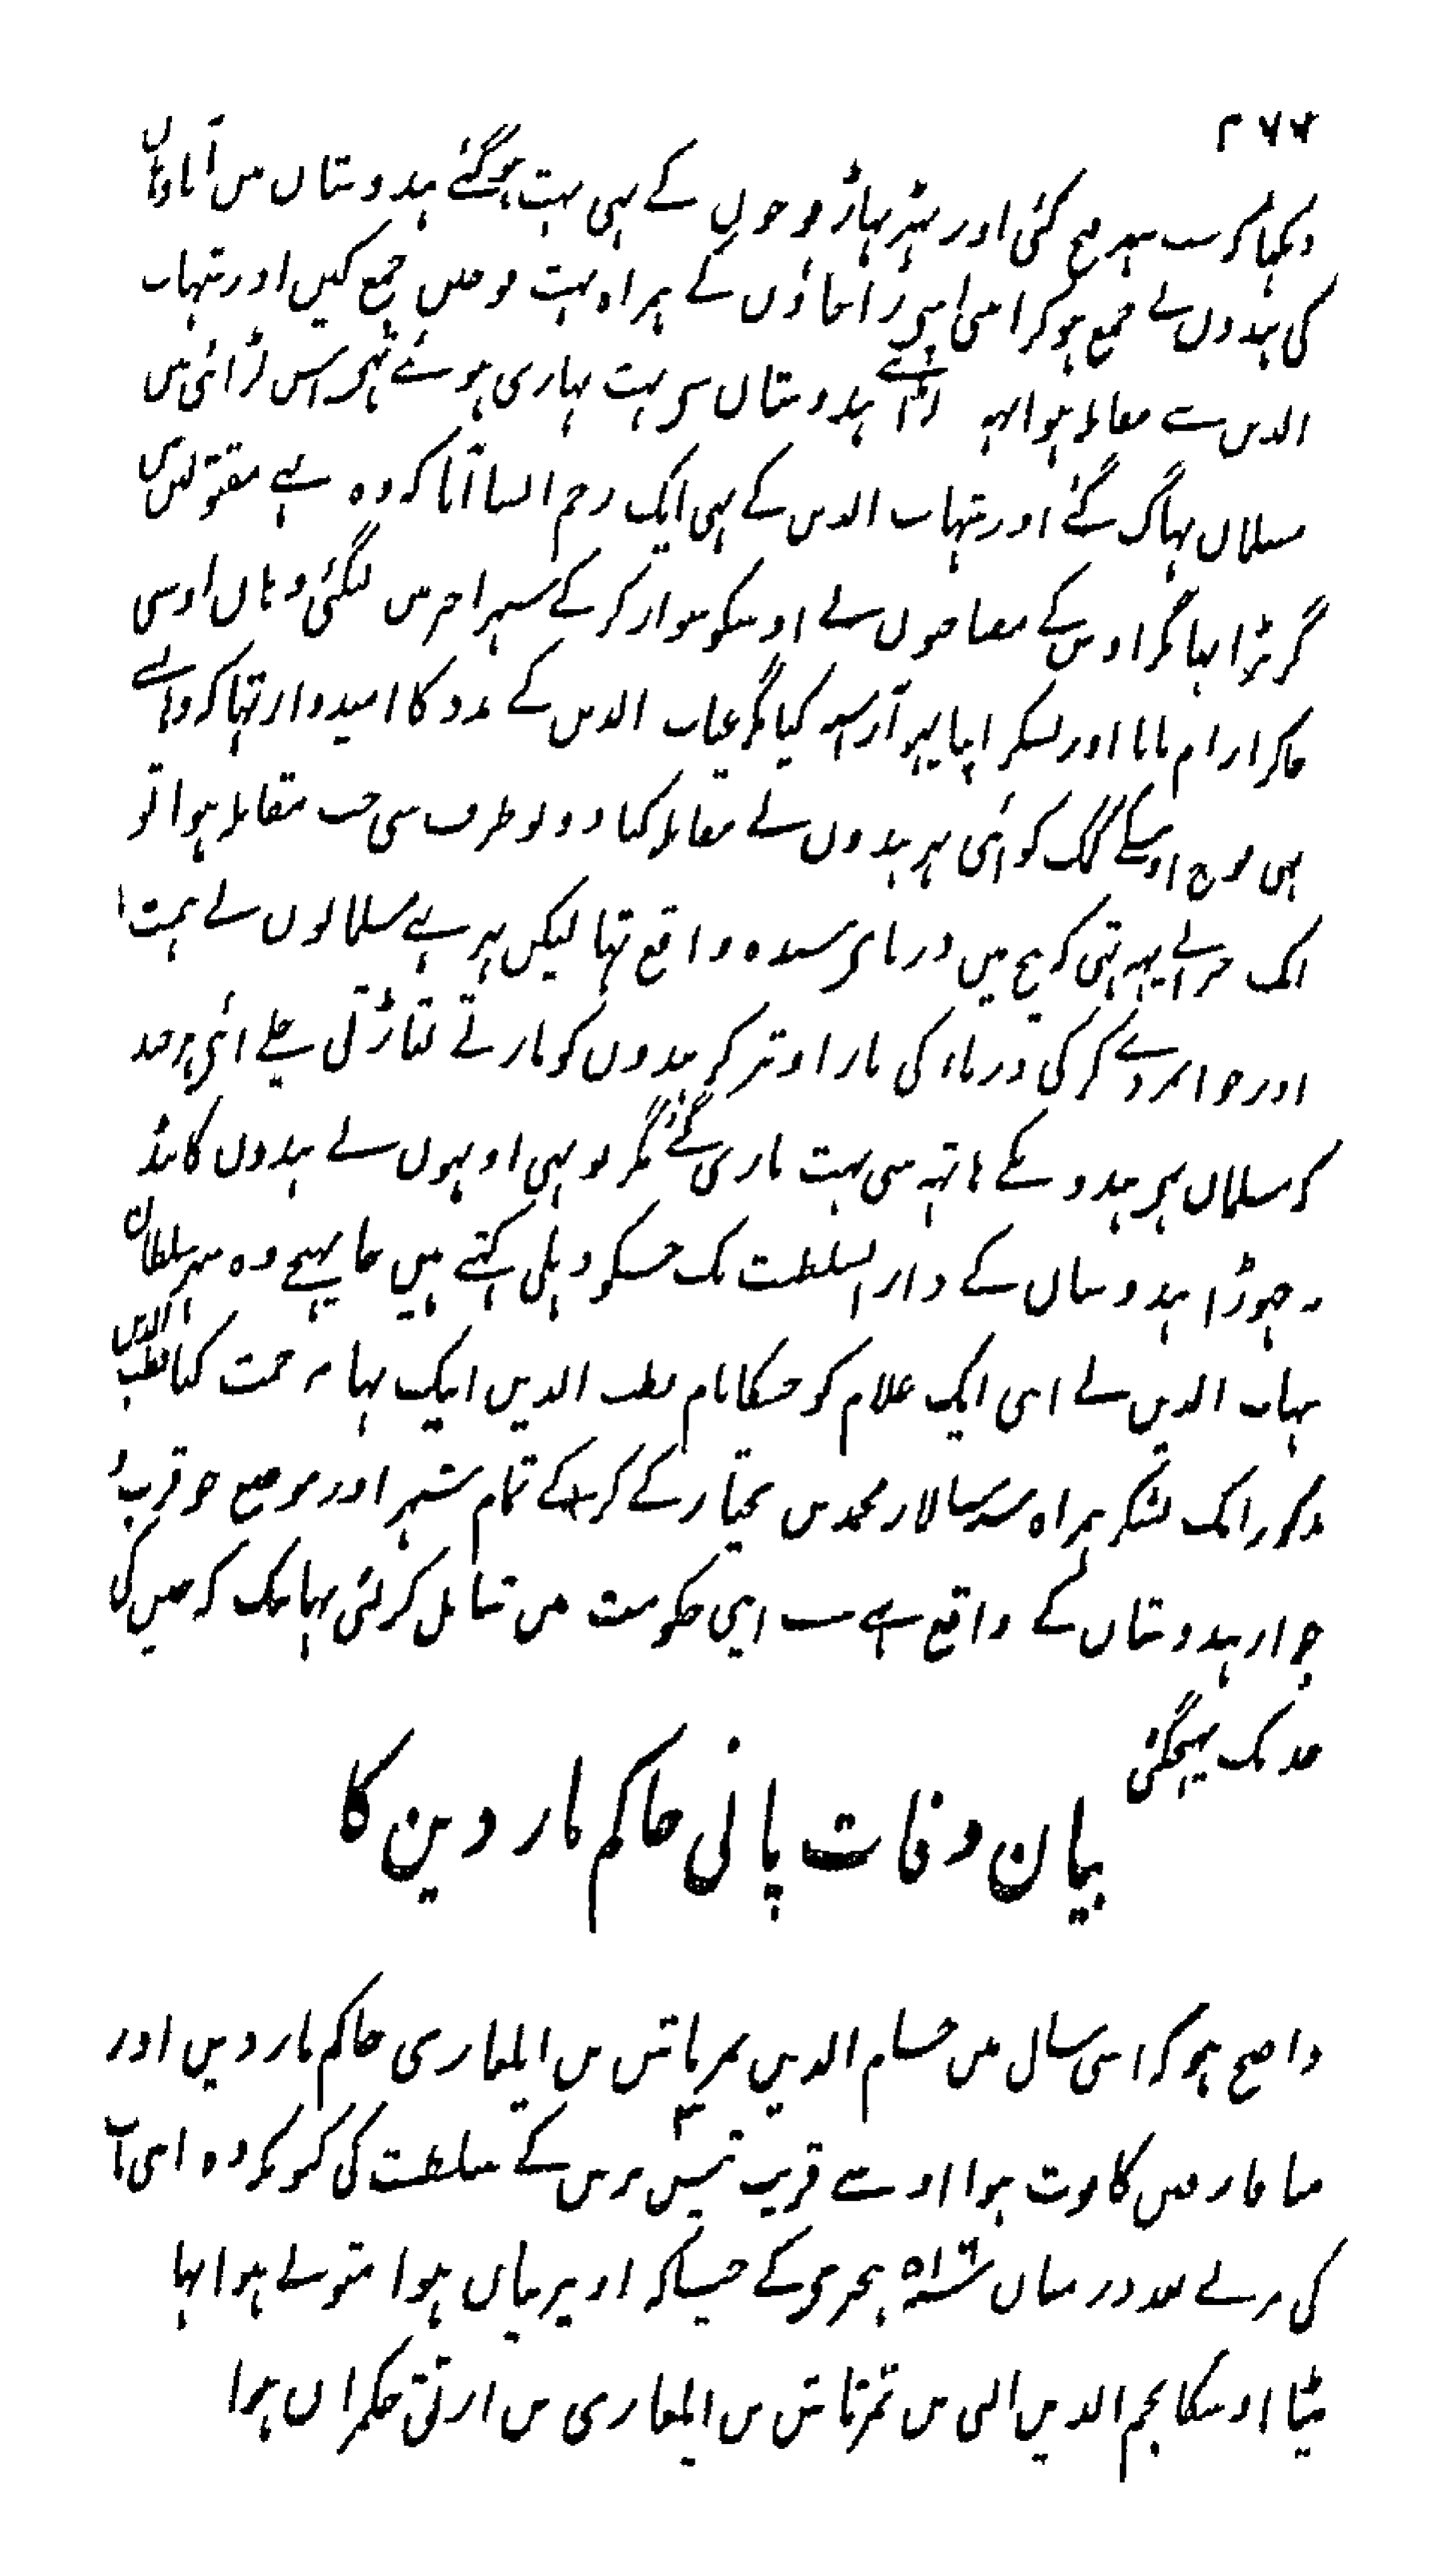 دیکہا کر سب شہر فتح کئی اور بہیڑ بہاڑ فوجوں کے بہی بہت ہوگئے ہندوستان میں آنا واں
کی ہندوں نے جمع ہو کر اپنی اپنی راجاؤں کے ہمراہ بہت فوجیں جمع کیں اور شہاب
الدین سے مقابلہ ہوا یہہ ہندوستان سی بہت بہاری ہوئے تہی اس لڑائی میں
مسلمان بہاگ گئے اور شہاب الدین کے بہی ایک زخم ایسا آیا کہ وہ بہے مقتولین میں
گر پڑا تہا مگر اوس کے مصاحبوں نے اوسکو سوار کر کے شہر میں لیگئی وہاں اوسی
جاکر ارام پایا اور لشکر اپنا پہر آراستہ کیا مگر غیاث الدین کے مدد کا امیدوار تہا کہ
بہی فوج اوسکے کمک کو آئی پہر ہندوں نے مقابلہ کیا دونو طرف سی جب مقابلہ ہوا تو
ایک خرابے یہہ تہی کہ بیچ میں دریای سندہ واقع تہا لیکن پہر بہے مسلمانوں نے ہمت
اور جوانمردے کر کی دریاء کی پار اوتر کر ہندوں کو مارتے لتاڑتی چلے ائی ہرچند
کہ مسلمان پہر ہندو کے ہاتہہ سی بہت ماری گئے مگر تو بہی اونہوں نے ہندوں کا پنڈ
نہ چہوڑا ہندوستان کے دار السلطنت تک جسکو دہلی کہتے ہیں جا پہنچے وہ شہر سلطان
شہاب الدین نے اپنی ایک غلام کو جسکا نام قطب الدین ایبک تہا مرحمت کیا قطب الدین
مذکور ایک لشکر ہمراہ سپہ سالار محمد بن بختیار کے کر کے تمام شہر اور موضع جو قرب و
جوار ہندوستان کے واقع تہے سب اپنی حکومت میں شامل کر لئی یہانتک کہ چین کی
حد تک پہنچگئی
بیان وفات پانی حاکم ماردین کا
واضح ہو کہ اسی سال میں حسام الدین تمرتاش بن ایلغازی حاکم ماردین اور
میافارقین کا فوت ہوا اوسے قریب تیس ۳ برس کے سلطنت کی کیونکہ وہ اپنی باپ
کی مرنے بعد درمیان سنہ ۵۱۶ ہجری کے جیساکہ اوپر بیان ہوا متولے ہوا تہا
بیٹا اوسکا نجم الدین البی بن تمرتاش بن ایلغازی بن ارتق حکمراں ہوا